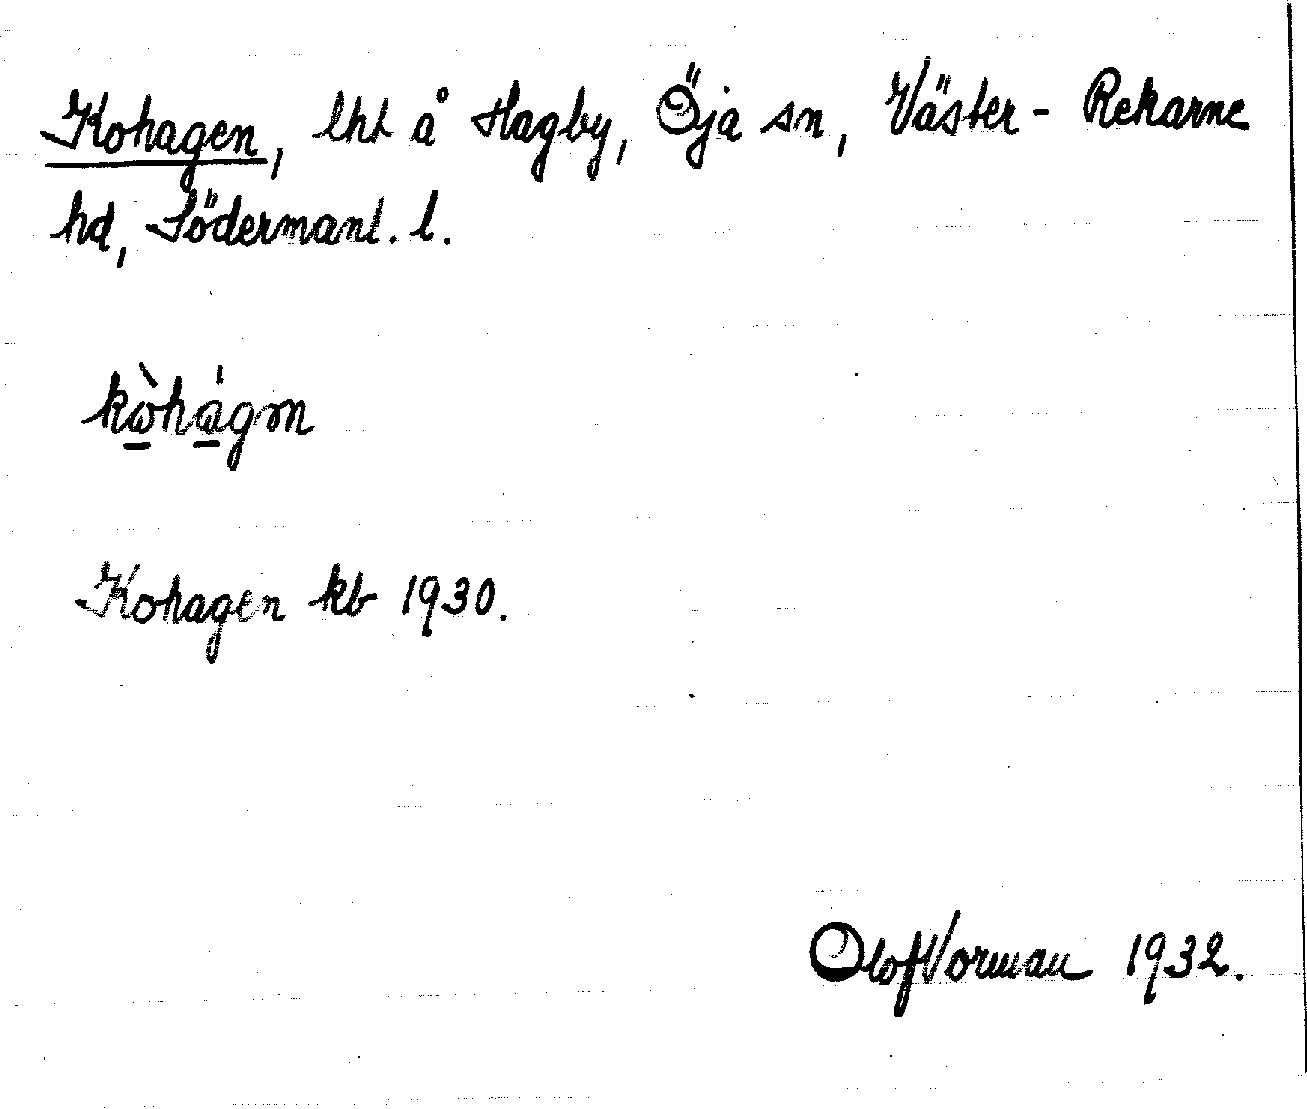 Kohagen, lht å Hagby, Öja sn, Väster-Rekarne
hd, Södermanl. l.
Kohagen kb 1930.
Olof Vorman 1932.